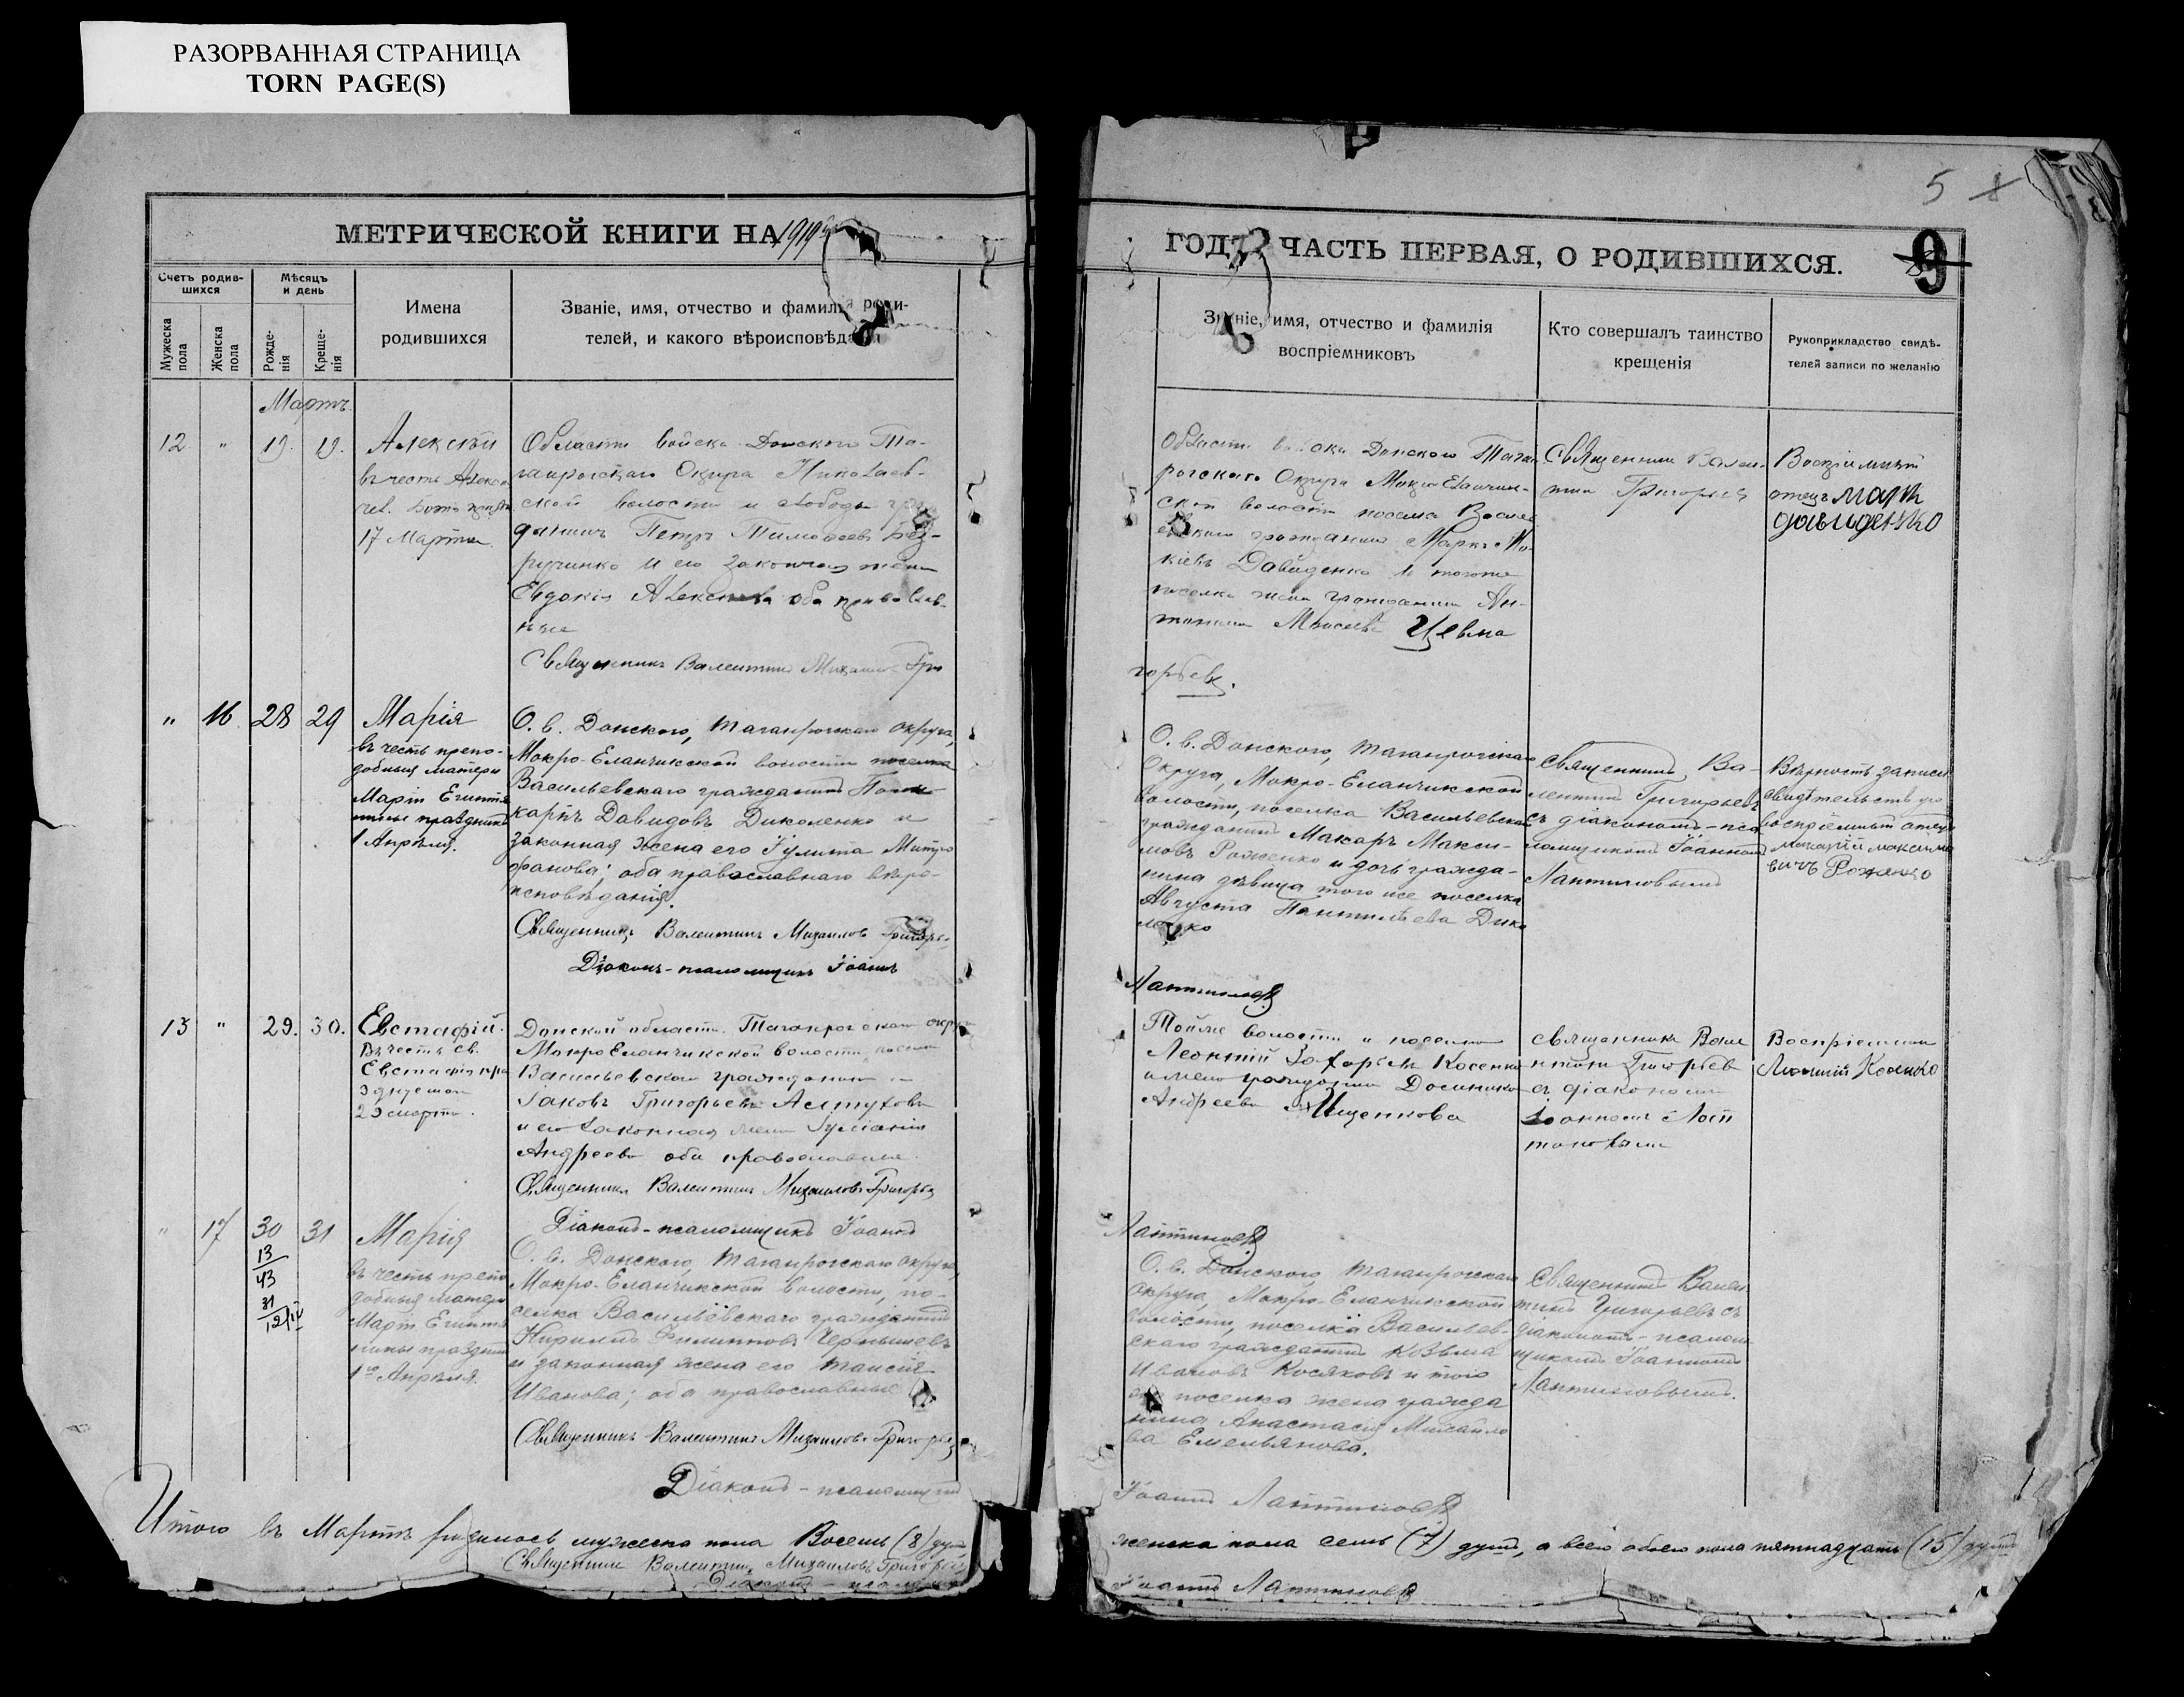 РАЗОРВАННАЯ СТРАНИЦА
TORN PAGE(S)
5
МЕТРИЧЕСКОЙ КНИГИ НА 1919
ГОДЪ ЧАСТЬ ПЕРВАЯ, О РОДИВШИХСЯ.
9
Счетъ родив-
шихся
Мужеска пола
Женска пола
Мѣсяцъ
и день
Рожде-
нія
Креще-
нія
Имена
родившихся
Званіе, имя, отчество и фамилія роди-
телей, и какого вѣроисповѣданія
Званіе, имя, отчество и фамилія
воспріемниковъ
Кто совершалъ таинство
крещенія
Рукоприкладство свидѣ-
телей записи по желанію
Мартъ.
12 " 19. 19.
Алексѣй
въ честь Алекс
чел. Божія
17 Марта
Области войска Донского Та-
ганрогскаго Округа Николаев-
ской волости и слободы гра
данинъ Петръ Тимофеевъ Без-
ручинко и его законная жена
Евдокія Алексѣева оба православ-
ные
Священникъ Валентинъ Михаиловъ Гри
горьевъ.
Области войска Донского Таган
рогскаго Округа Мокро Еланчик-
ской волости поселка Василь
евскаго гражданинъ Маркъ
Давиденко и тогоже
поселка жена гражданина Ан-
тонина Моисеева
Священникъ Вален-
тинъ Григорьевъ
Воспріемный
отецъ Марк
Давиденко
" 16 28 29
Марія
въ честь препо-
добныя матери
Маріи Египтя
нины праздник
1 Апрѣля.
О. в. Донского, Таганрогскаго округа,
Мокро-Еланчикской волости поселка
Васильевскаго гражданинъ Поли-
карпъ Давидовъ Диколенко и
законная жена его Іулита Митро
фанова; оба православнаго вѣро-
исповѣданія.
Священникъ Валентинъ Михаиловъ Григорь-
Діаконъ-псаломщикъ Іоаннъ
Лаптиновъ
О. в. Донского, Таганрогскаго
Округа, Мокро-Еланчикской
волости, поселка Васильевскаго
гражданинъ Макаръ Макси-
мовъ Роженко и дочь гражда-
нина дѣвица того же поселка
Августа Пантилѣева Дико
ленко
Священникъ Ва-
лентинъ Григорьевъ
съ діакономъ-пса
ломщикомъ Іоанномъ
Лаптиновымъ
Вѣрность записи
свидѣтельствую
воспріемный отецъ
Макарій Максимо
вичъ Роженко
13 " 29. 30.
Евстафій.
Въ честь св.
Евстафія
29 марта.
Донской области Таганрогскаго округа
Мокро Еланчикской волости, поселка
Васильевскаго гражданинъ
Іаковъ Григорьевъ Астуховъ
и его законная жена Іуліанія
Андреева оба православные
Священникъ Валентинъ Михаиловъ Григорьевъ
Діаконъ-псаломщикъ Іоаннъ
Лаптиновъ
Тойже волости и поселка
Леонтій Захарьевъ Косенко
и жена гражданина
Андреева Ищенкова
Священникъ Вале
нтинъ Григорьев
съ діакономъ
Іоанномъ Лап
тиновымъ
Воспріемникъ
Леонтій Косенко
" 17 30 31
13
43
31
12/IV
Марія
въ честь препо
добныя матери
Маріи Египтя
нины праздник
1го Апрѣля.
О. в. Донского, Таганрогскаго округа,
Мокро-Еланчикской волости, по-
селка Васильевскаго гражданинъ
Кириллъ Филипповъ Чернышевъ
и законная жена его Таисія
Иванова; оба православные
Священникъ Валентинъ Михаиловъ Григорьевъ
Діаконъ-псаломщикъ
Іоаннъ Лаптиновъ
О. в. Донского, Таганрогскаго
округа, Мокро-Еланчикской
волости, поселка Васильев-
скаго гражданинъ Козьма
Ивановъ Косяковъ и того
же поселка жена гражда
нина Анастасія Михайло
ва Емельянова.
Священникъ Вален
тинъ Григорьевъ съ
діакономъ-псалом
щикомъ Іоанномъ
Лаптиновымъ.
Итого въ Мартѣ родилось мужеска пола Восемь (8) душъ
женска пола семь (7) душъ, а всего обоего пола пятнадцать (15) душъ
Священникъ Валентинъ Михаиловъ Григорьевъ
Діаконъ-псаломщикъ
Іоаннъ Лаптиновъ